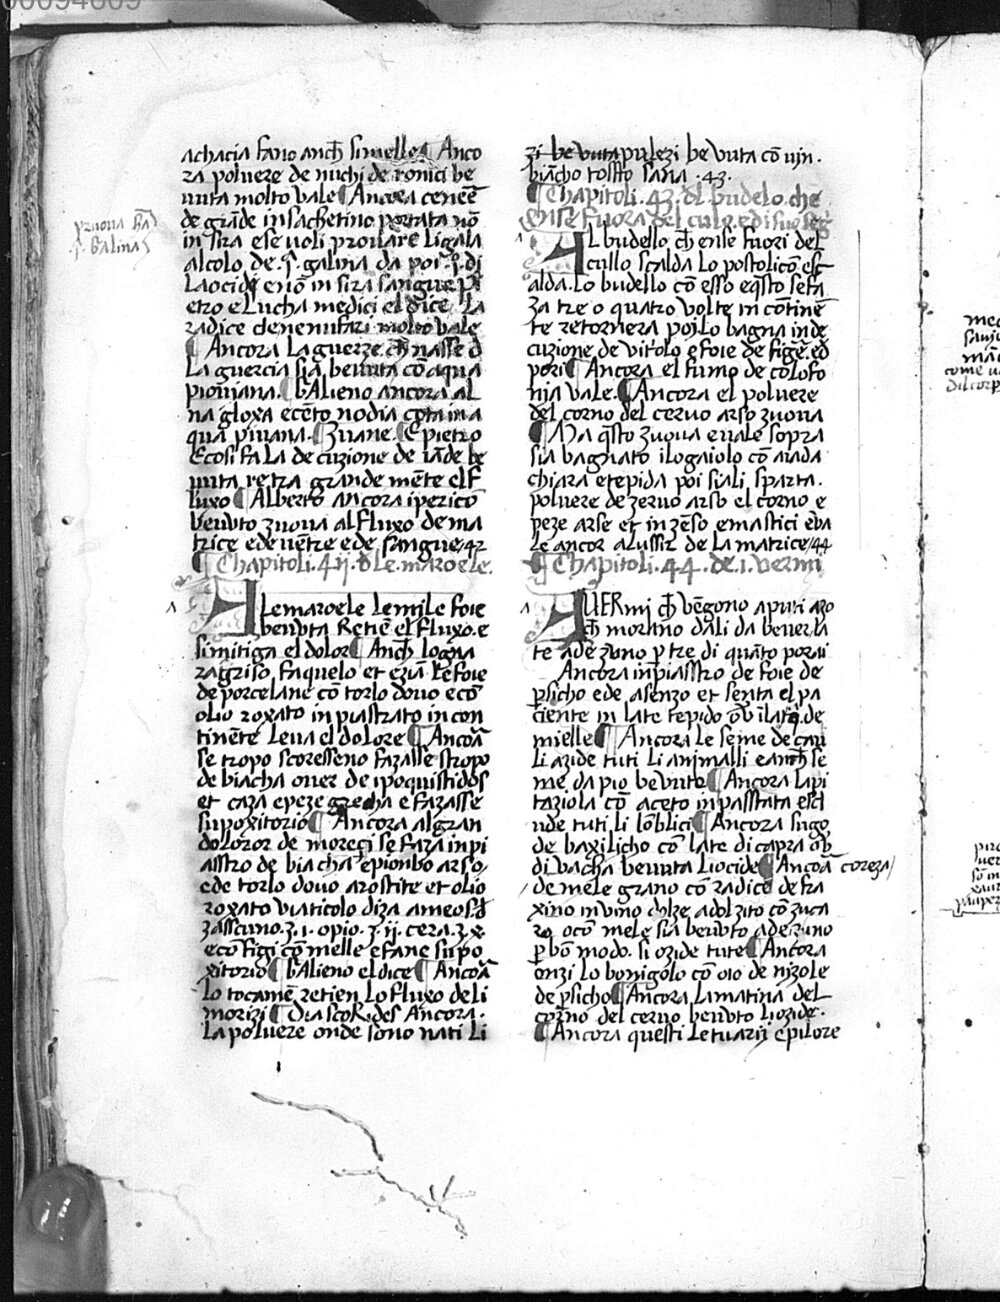 00094609
achacia fano anch̄ simelle ¶ Anco
ra poluere de nuchi de ronici be
uuta molto vale ¶ Ancora cenere
de grāde in sachetino portata nō
in sira e se uoli prouare ligala
al colo de .j̄. galina da poi .j̄. di
la ocide e nō in sira sangue pi
etro e Lucha medici el dice. La
radice de nenufari molto vale
¶ Ancora la guerze ch̄ nasse d̄
La guercia sia beuuta cō aqua
piouiana. ¶ Galieno ancora al
na gloxa
qua piuana. ¶ Zuane. ¶ E pietro
Ecosi fa la decuzione de iāde be
uuta retra grande mēte el f
luxo ¶ Alberto ancora ipericō
beuuto zuoua al fluxo de ma
trice e de uētre e de sangue/42
¶ Chapitoli .4ij. d̄ le. maroele.
A Le maroele le mile foie
beuuta Retiē el fluxo. e
si mitiga el dolor ¶ Anch̄ logna
ragriso fa quelo et eziā le foie
de porcelane cō torlo douo e cō
olio roxato in piastrato in con
tinēte leua el dolore ¶ Ancoā
se tropo scoresseno fazasse stropo
de biacha ouer de ipoquistidos
et caza e peze grecha e fazasse
supoxitorio ¶ Ancora al gran
doloror de moreci se faza inpi
asstro de biacha e pionbo arso,
e de torlo douo arostite et olio
roxato viaticolo diza ameos. d̄
zasscuno. ʒ. i. opio. ʒ. ij. cera. ʒ. x
e cō figi cō melle e fane supo
xitorio ¶ Galieno el dice ¶ Ancoā
Lo tocamē retien lo fluxo de li
morizi ¶ Diascorides Ancora.
La poluere onde sono nati li
pruoua ha
.j̄. galina
zi beuuta pulezi beuuta cō uin.
biācho tossto sana .43.
¶ Chapitoli .43. dl budelo che
ense fuora del culo. e di suo seḡ
A L budello ch̄ ense fuori del
cullo scalda lo postolicō esc
alda. Lo budello cō esso e q̄sto se fa
za tre o quatro volte in cōtinē
te retornera poi lo bagna in de
cuzione de vitolo e foie de figē. ed
peri ¶ Ancora el fumo de colofo
nia vale. ¶ Ancora el poluere
del corno del ceruo arso zuoua
¶ Ma q̄sto zuoua e uale sopra
sia bagnato ilogaiolo cō aiada
chiara e tepida poi si ali sparta.
poluere de zeruo arso el corno e
peze arse et in zēso e mastici e va
le ancor alussir de la matrice/44
¶ Chapitoli .44. de .i. vermi
A UERmi ch̄ vēgono a puti azo
ch̄ morano dali da beuer la
te a dezuno p̄ tre di quāto porai
Ancora inpiasstro de foie de
p̄sicho e de asenzo et senta el pa
ciente in late tepido
mielle ¶ Ancora le seme de cau
li azide tuti li animalli e anch̄ se
me da pio beuuto ¶ Ancora lapi
taziola cō aceto in passtata escl
ude tuti li lōblici ¶ Ancora sugo
de baxilicho cō late di capra ōb
di vacha beuuta li ocide ¶ Ancoā coreza/
/ de mele grano cō radice de fra
xino in vino dolze adolzito cō zuca
ro. o cō mele sia beuuto a dezuno
p̄ bō modo. si ozide tute ¶ Ancora
onzi lo bonigolo cō oio de nizole
de p̄sicho ¶ Ancora La matina del
corno del ceruo beuuto li ozide.
¶ Ancora questi Letuarij e pilore
come
dil corp